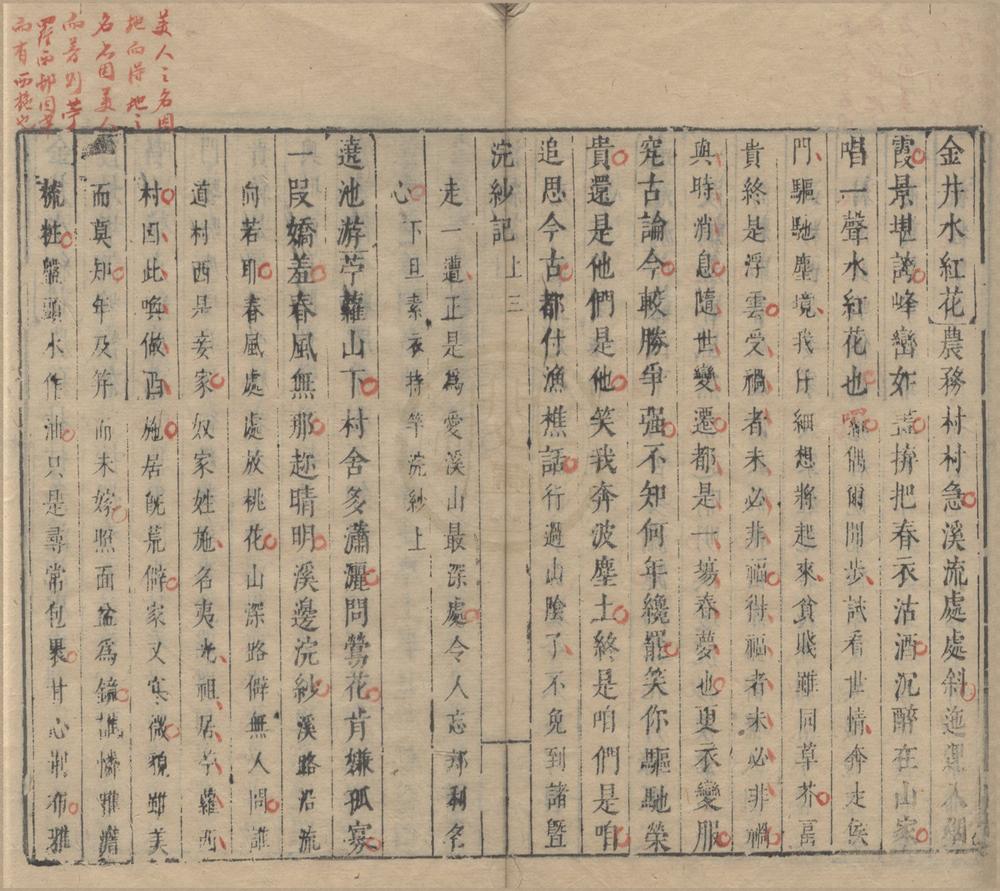 美人之名因
地而得地之
名又因美人
而著則苧
蘿西村因
而有西施也
金井水紅花農務村村急溪流處處斜迤邐入烟
霞景堪誇峰巒如畫拚把春衣沽酒沉醉在山家
唱一聲水紅花也囉偶爾閒步試看世情奔走侯
門驅馳塵境我仔細想將起來貧賤雖同草芥富
貴終是浮雲受禍者未必非福得福者未必非禍
與時消息隨世變遷都是一場春夢也更衣變服
究古論今較勝爭强不知何年纔罷笑你驅馳榮
貴還是他們是他笑我奔波塵土終是咱們是咱
追思今古都付漁樵話行過山陰了不免到諸暨
浣紗記 上 三
走一遭正是爲愛溪山最深處令人忘却利名
心 下旦素衣持竿浣紗上
遶池游苧蘿山下村舍多瀟灑問鶯花肯嫌孤寡
一段嬌羞春風無那趂晴明溪邊浣紗溪路沿流
向若耶春風處處放桃花山深路僻無人問誰
道村西是妾家奴家姓施名夷光祖居苧蘿西
村因此喚做西施居旣荒僻家又寒微貌雖美
而莫知年及笄而未嫁照面盆爲鏡誰憐雅澹
梳粧盤頭水作油只是尋常包裹甘心荆布雅